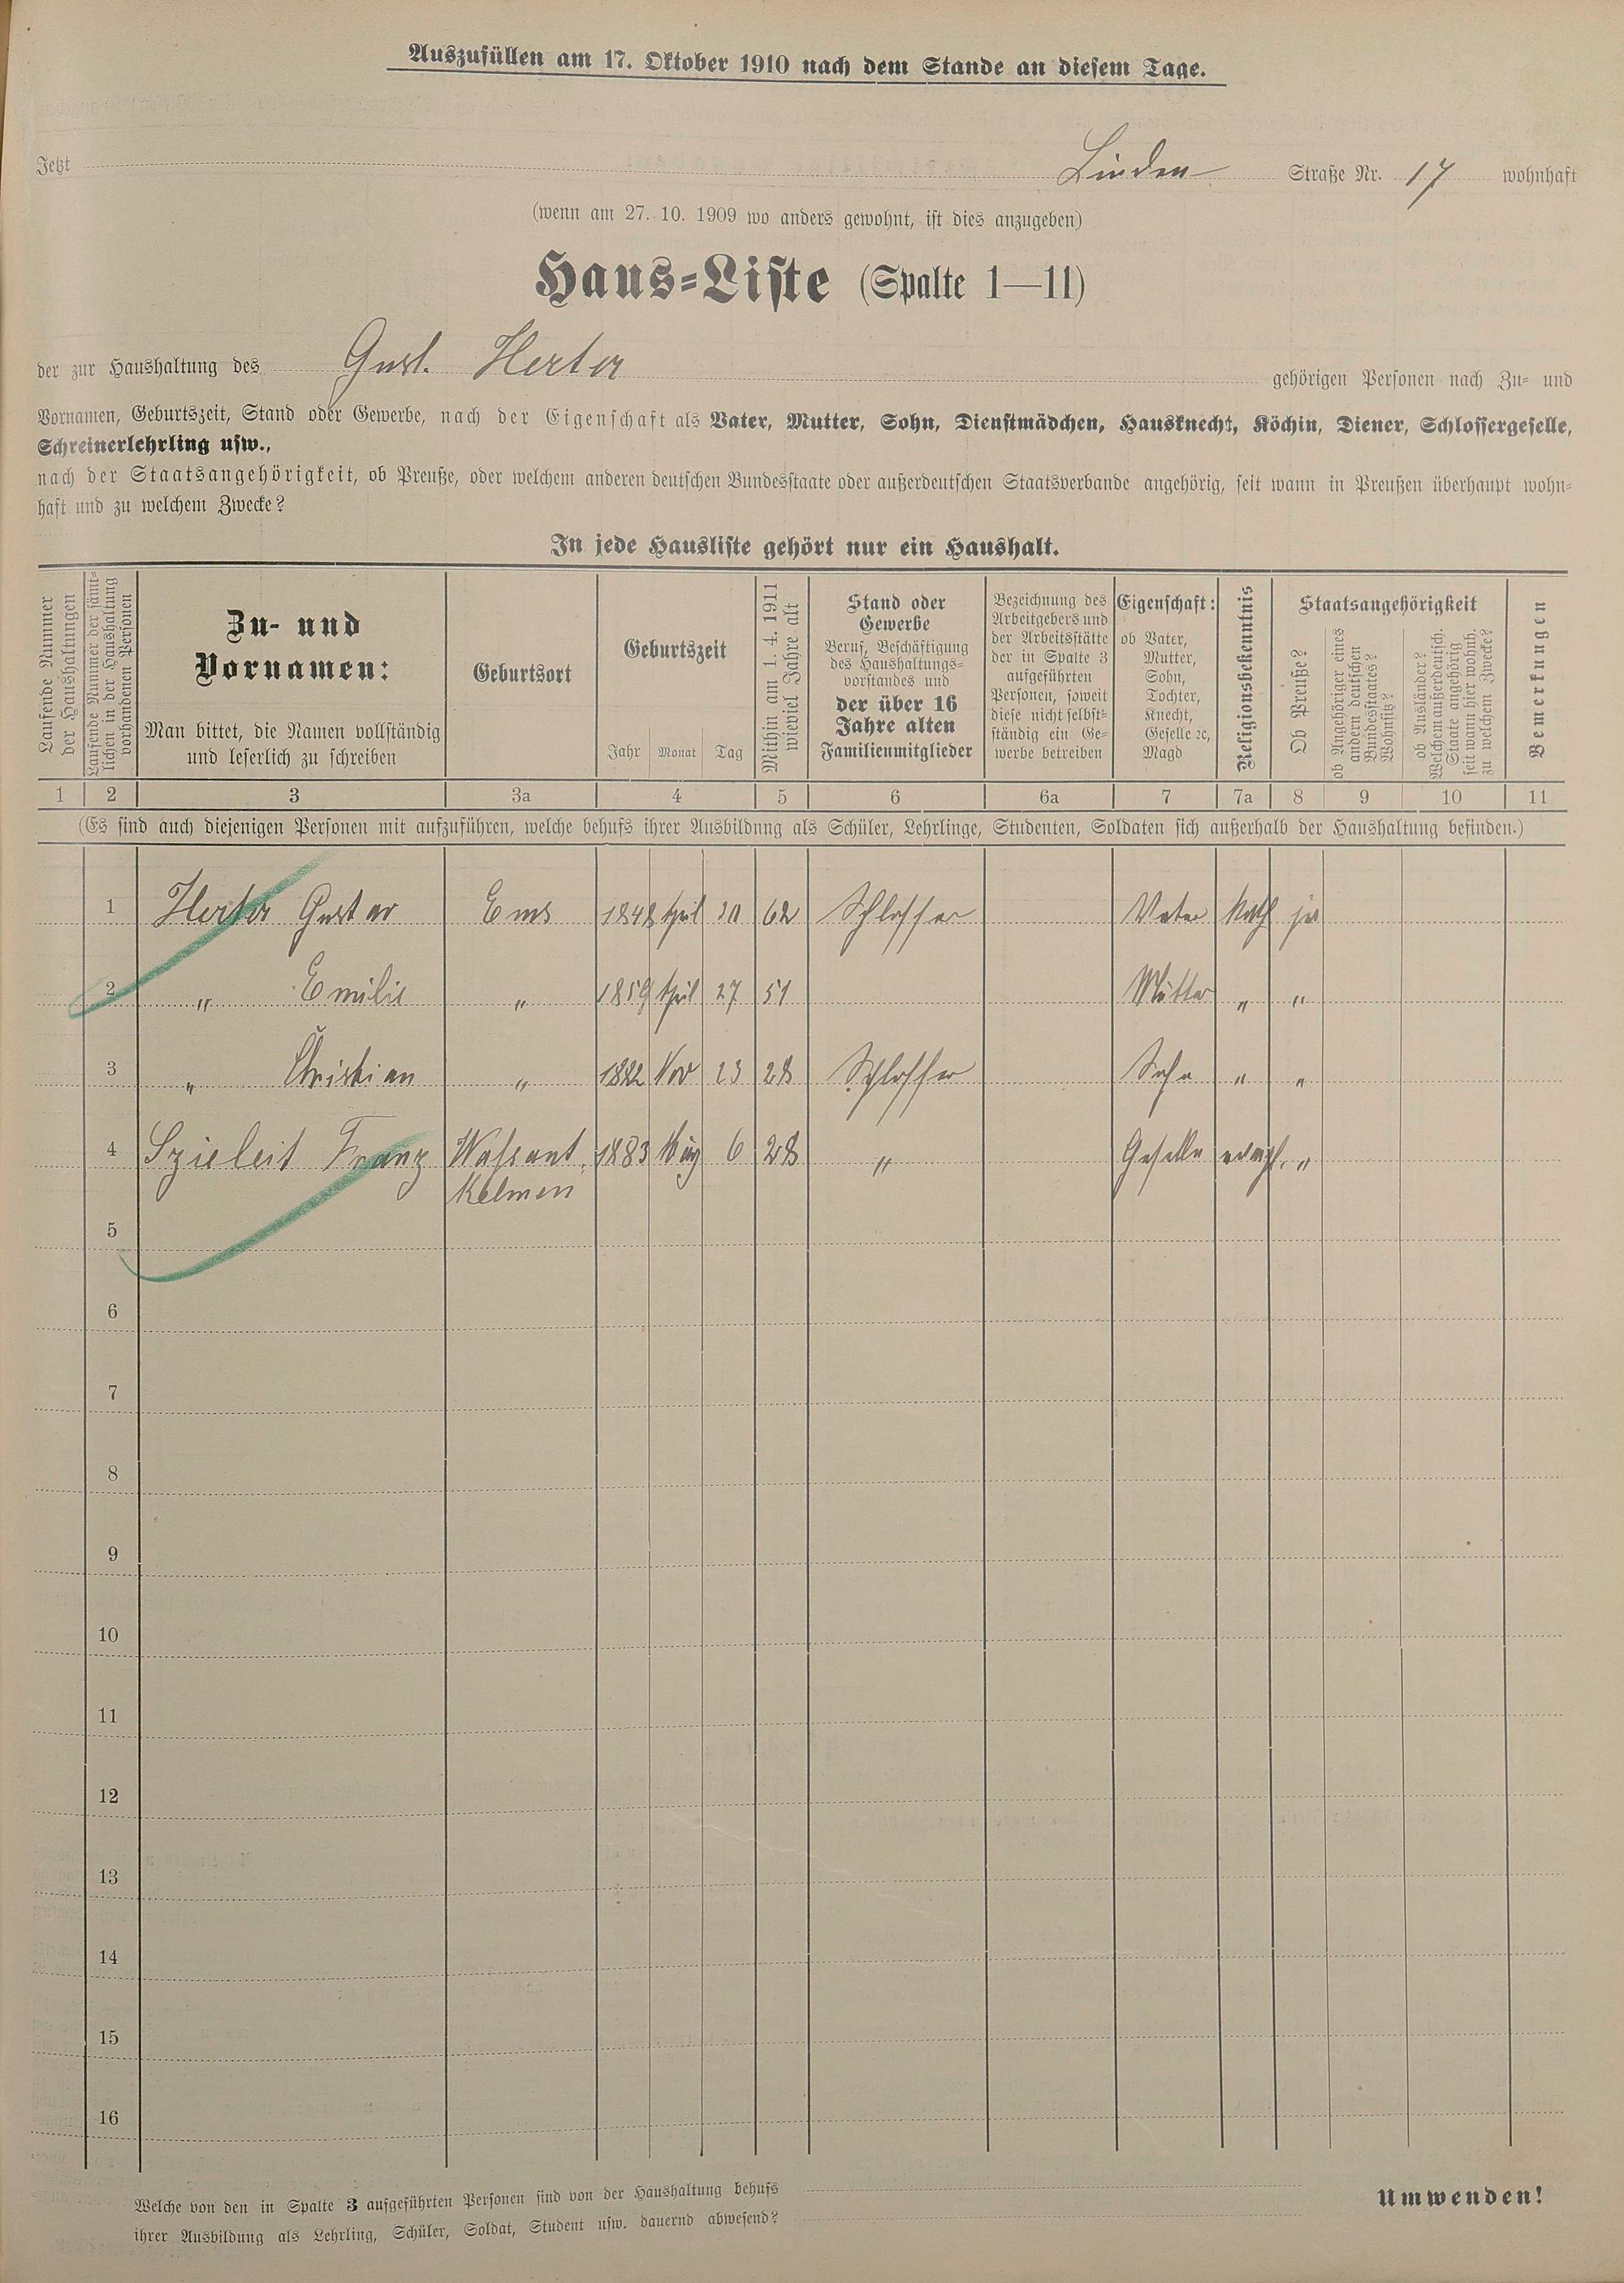 Auszufüllen am 17. Oktober 1910 nach dem Stande an diesem Tage.
Jetzt Linden Straße Nr. 17 wohnhaft
(wenn am 27. 10. 1909 wo anders gewohnt, ist dies anzugeben)
Haus-Liste (Spalte 1—11)
der zur Haushaltung des Gust. Herter gehörigen Personen nach Zu- und
Vornamen, Geburtszeit, Stand oder Gewerbe, nach der Eigenschaft als Vater, Mutter, Sohn, Dienstmädchen, Hausknecht, Köchin, Diener, Schlossergeselle,
Schreinerlehrling usw.,
nach der Staatsangehörigkeit, ob Preuße, oder welchem anderen deutschen Bundesstaate oder außerdeutschen Staatsverbande angehörig, seit wann in Preußen überhaupt wohn-
haft und zu welchem Zwecke?
In jede Hausliste gehört nur ein Haushalt.
Laufende Nummer
der Haushaltungen
Laufende Nummer der sämt-
lichen in der Haushaltung
vorhandenen Personen
Zu- und
Vornamen:
Man bittet, die Namen vollständig
und leserlich zu schreiben
Geburtsort
Geburtszeit
Jahr Monat Tag
Mithin am 1. 4. 1911
wieviel Jahre alt
Stand oder
Gewerbe
Beruf, Beschäftigung
des Haushaltungs-
vorstandes und
der über 16
Jahre alten
Familienmitglieder
Bezeichnung des
Arbeitgebers und
der Arbeitsstätte
der in Spalte 3
aufgeführten
Personen, soweit
diese nicht selbst-
ständig ein Ge-
werbe betreiben
Eigenschaft:
ob Vater,
Mutter,
Sohn,
Tochter,
Knecht,
Geselle ꝛc,
Magd
Religionsbekenntnis
Staatsangehörigkeit
Ob Preuße?
ob Angehöriger eines
andern deutschen
Bundesstaates?
Wohnsitz?
ob Ausländer?
Welchem außerdeutsch.
Staate angehörig
seit wann hier wohnh.
zu welchem Zwecke?
Bemerkungen
1 2 3 3a 4 5 6 6a 7 7a 8 9 10 11
(Es sind auch diejenigen Personen mit aufzuführen, welche behufs ihrer Ausbildung als Schüler, Lehrlinge, Studenten, Soldaten sich außerhalb der Haushaltung befinden.)
1 Herter Gustav Ems 1848 April 62 Schlosser Vater Kath ja
2 " Emilie " 1859 April 27 51 Mutter " "
3 " Christian " 1882 Nov 23 28 Schlosser Sohn " "
4 Szieleit Franz 1883 Aug 6 28 " Geselle evangl. "
Kelmen
5
6
7
8
9
10
11
12
13
14
15
16
Welche von den in Spalte 3 aufgeführten Personen sind von der Haushaltung behufs
ihrer Ausbildung als Lehrling, Schüler, Soldat, Student usw. dauernd abwesend?
Umwenden!